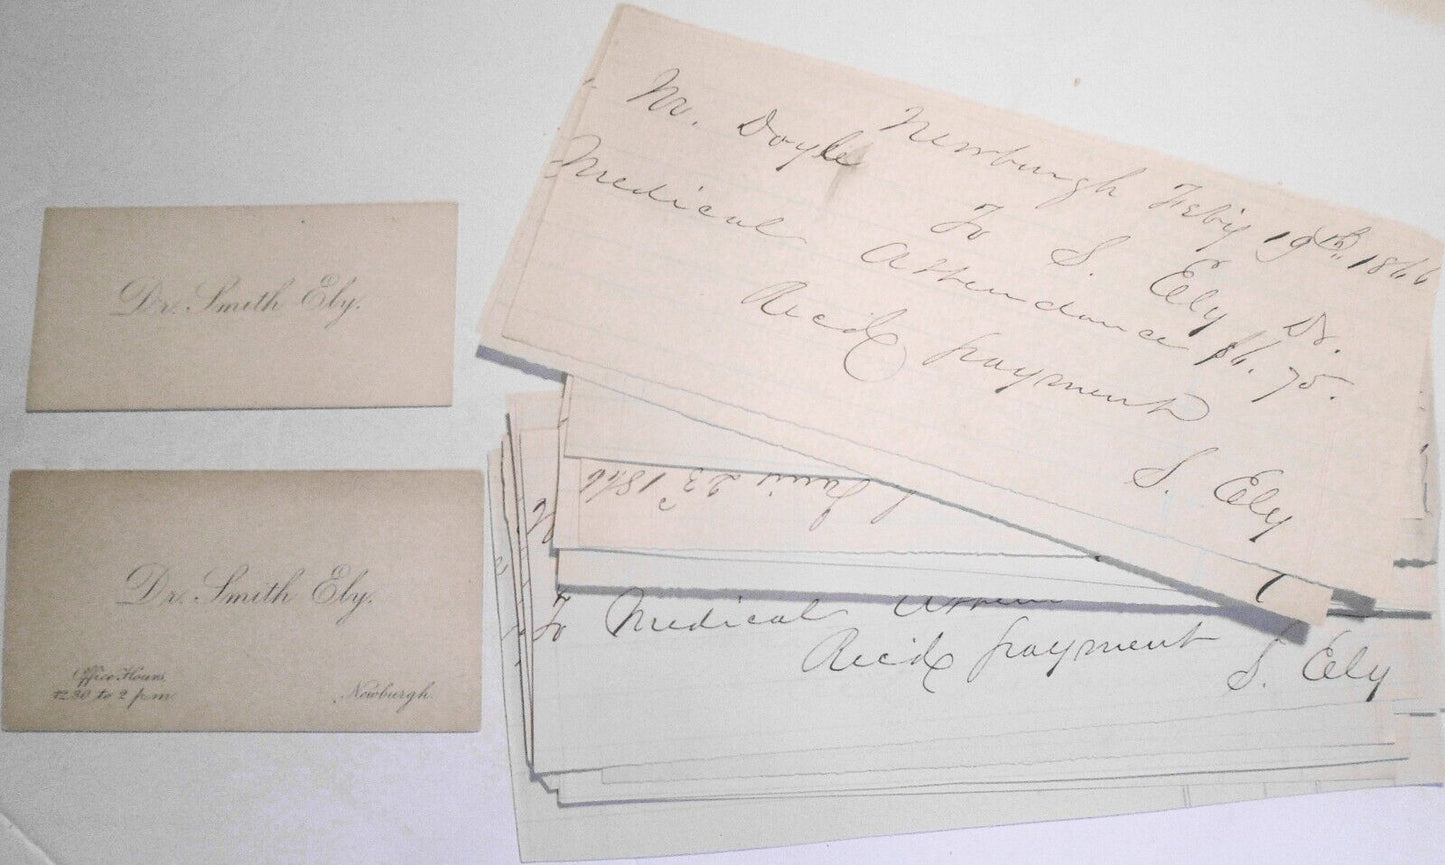 Dr. Smith Ely.
Dr. Smith Ely.
Office Hours,
12.30 to 2 p.m.
Newburgh.
Newburgh Feb'y 19th, 1866
Mr. Doyle
To S. Ely Dr.
Medical Attendance $6.75.
Rec'd payment
S. Ely
23 1866
To Medical Atten
Rec'd payment
S. Ely